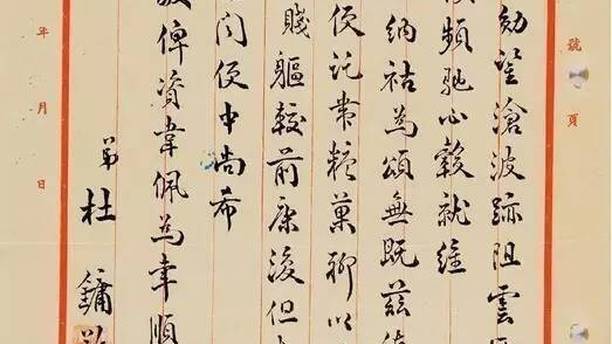 號 頁
勛鑒滄波跡阻雲
頻馳心轂就維
納祜為頌無既茲
便託帶糕菓聊以
賤軀較前康復但
閒便中尚希
俾資韋佩為幸順
弟 杜 鏞
年 月 日